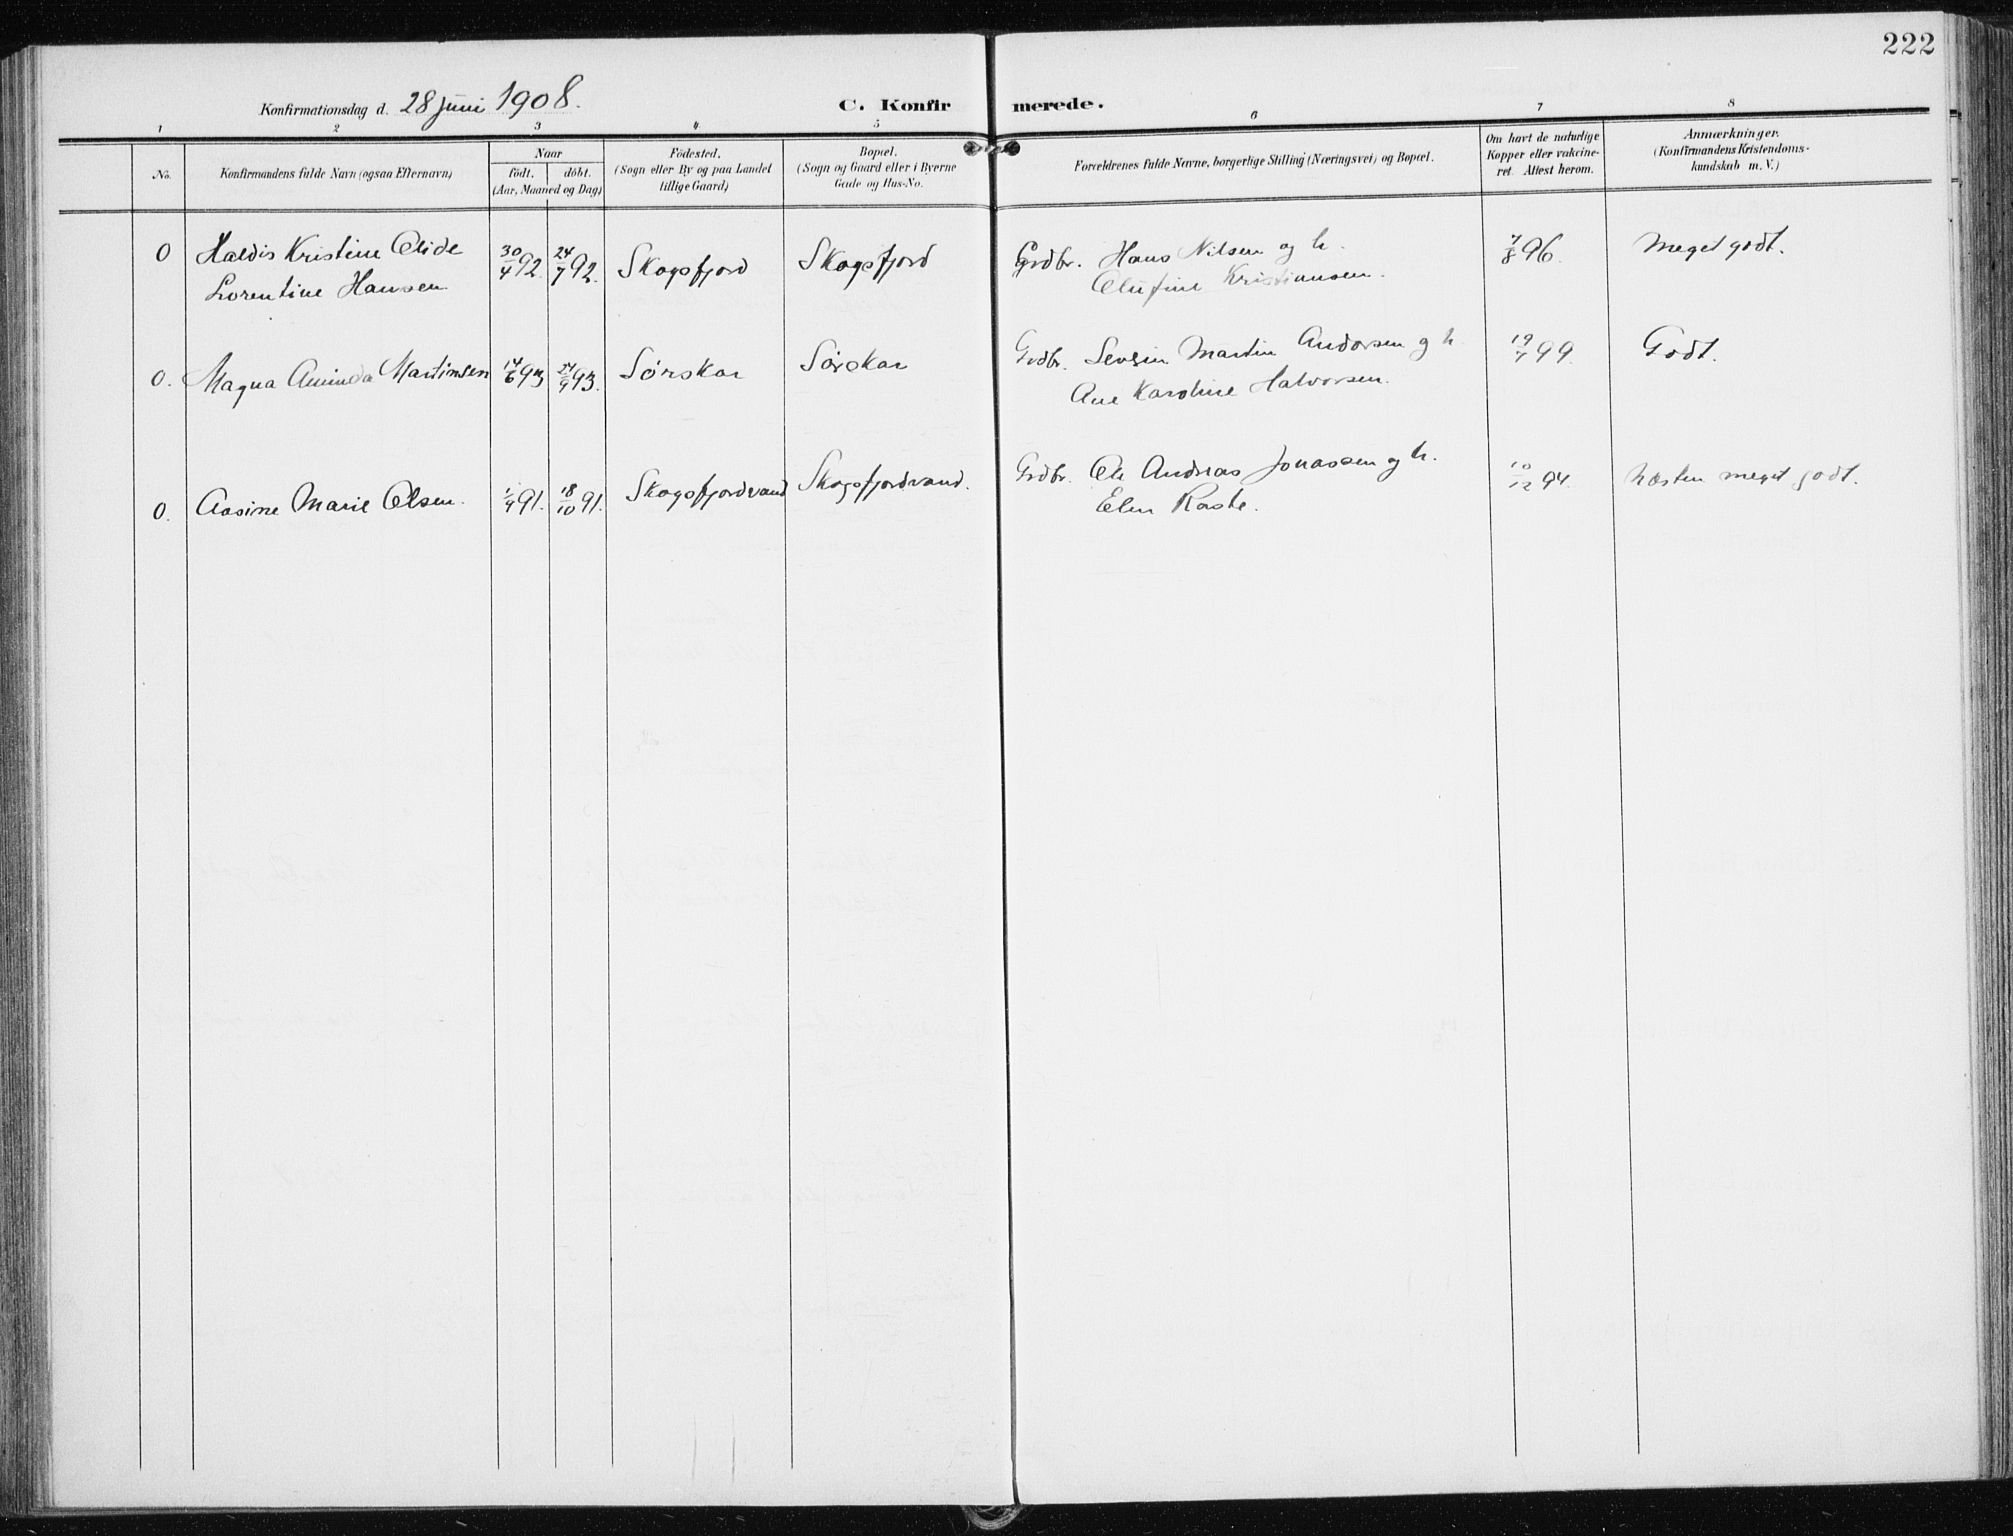 222
Konfirmationsdag d. 28 juni 1908.
C. Konfirmerede.
1 2 3 4 5 6 7 8
No.
Konfirmandens fulde Navn (ogsaa Efternavn)
Naar
født. døbt.
(Aar, Maaned og Dag)
Fødested.
(Sogn eller By og paa Landet
tillige Gaard)
Bopæl.
(Sogn og Gaard eller i Byerne
Gade og Hus-No.
Forældrenes fulde Navne, borgerlige Stilling (Næringsvei) og Bopæl.
Om havt de naturlige
Kopper eller vakcine-
ret. Attest herom.
Anmærkninger.
(Konfirmandens Kristendoms-
kundskab m. V.)
0 Haldis Kristine Olide 30/4 92. 24/7 92. Skogsfjord Skogsfjord Grdbr. Hans Nilsen og h. 7/8 96. Meget godt.
Lorentine Hansen Olufine Kristiansen.
0. Magna Aminda Martinsen 14/6 93 24/9 93. Sørskar Sørskar Grdbr. Martin Andorsen og h. 19/7 99. Godt.
Ane Karoline Halvorsen.
0. Aasine Marie Olsen. 1/9 91. 18/10 91. Skogsfjordvand Skogsfjordvand. Grdbr. Ole Andreas Jonassen og h. 10/12 94. Næsten meget godt.
Elen Raste.